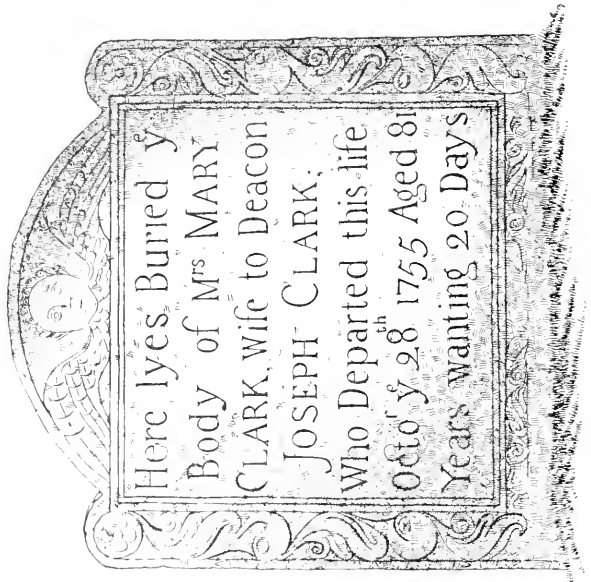 Here lyes Buried yͤ
Body of Mʳˢ MARY
CLARK, Wife to Deacon
JOSEPH CLARK,
Who Departed this life
Octoʳ yͤ 28ᵗʰ 1755 Aged 81
Years wanting 20 Days